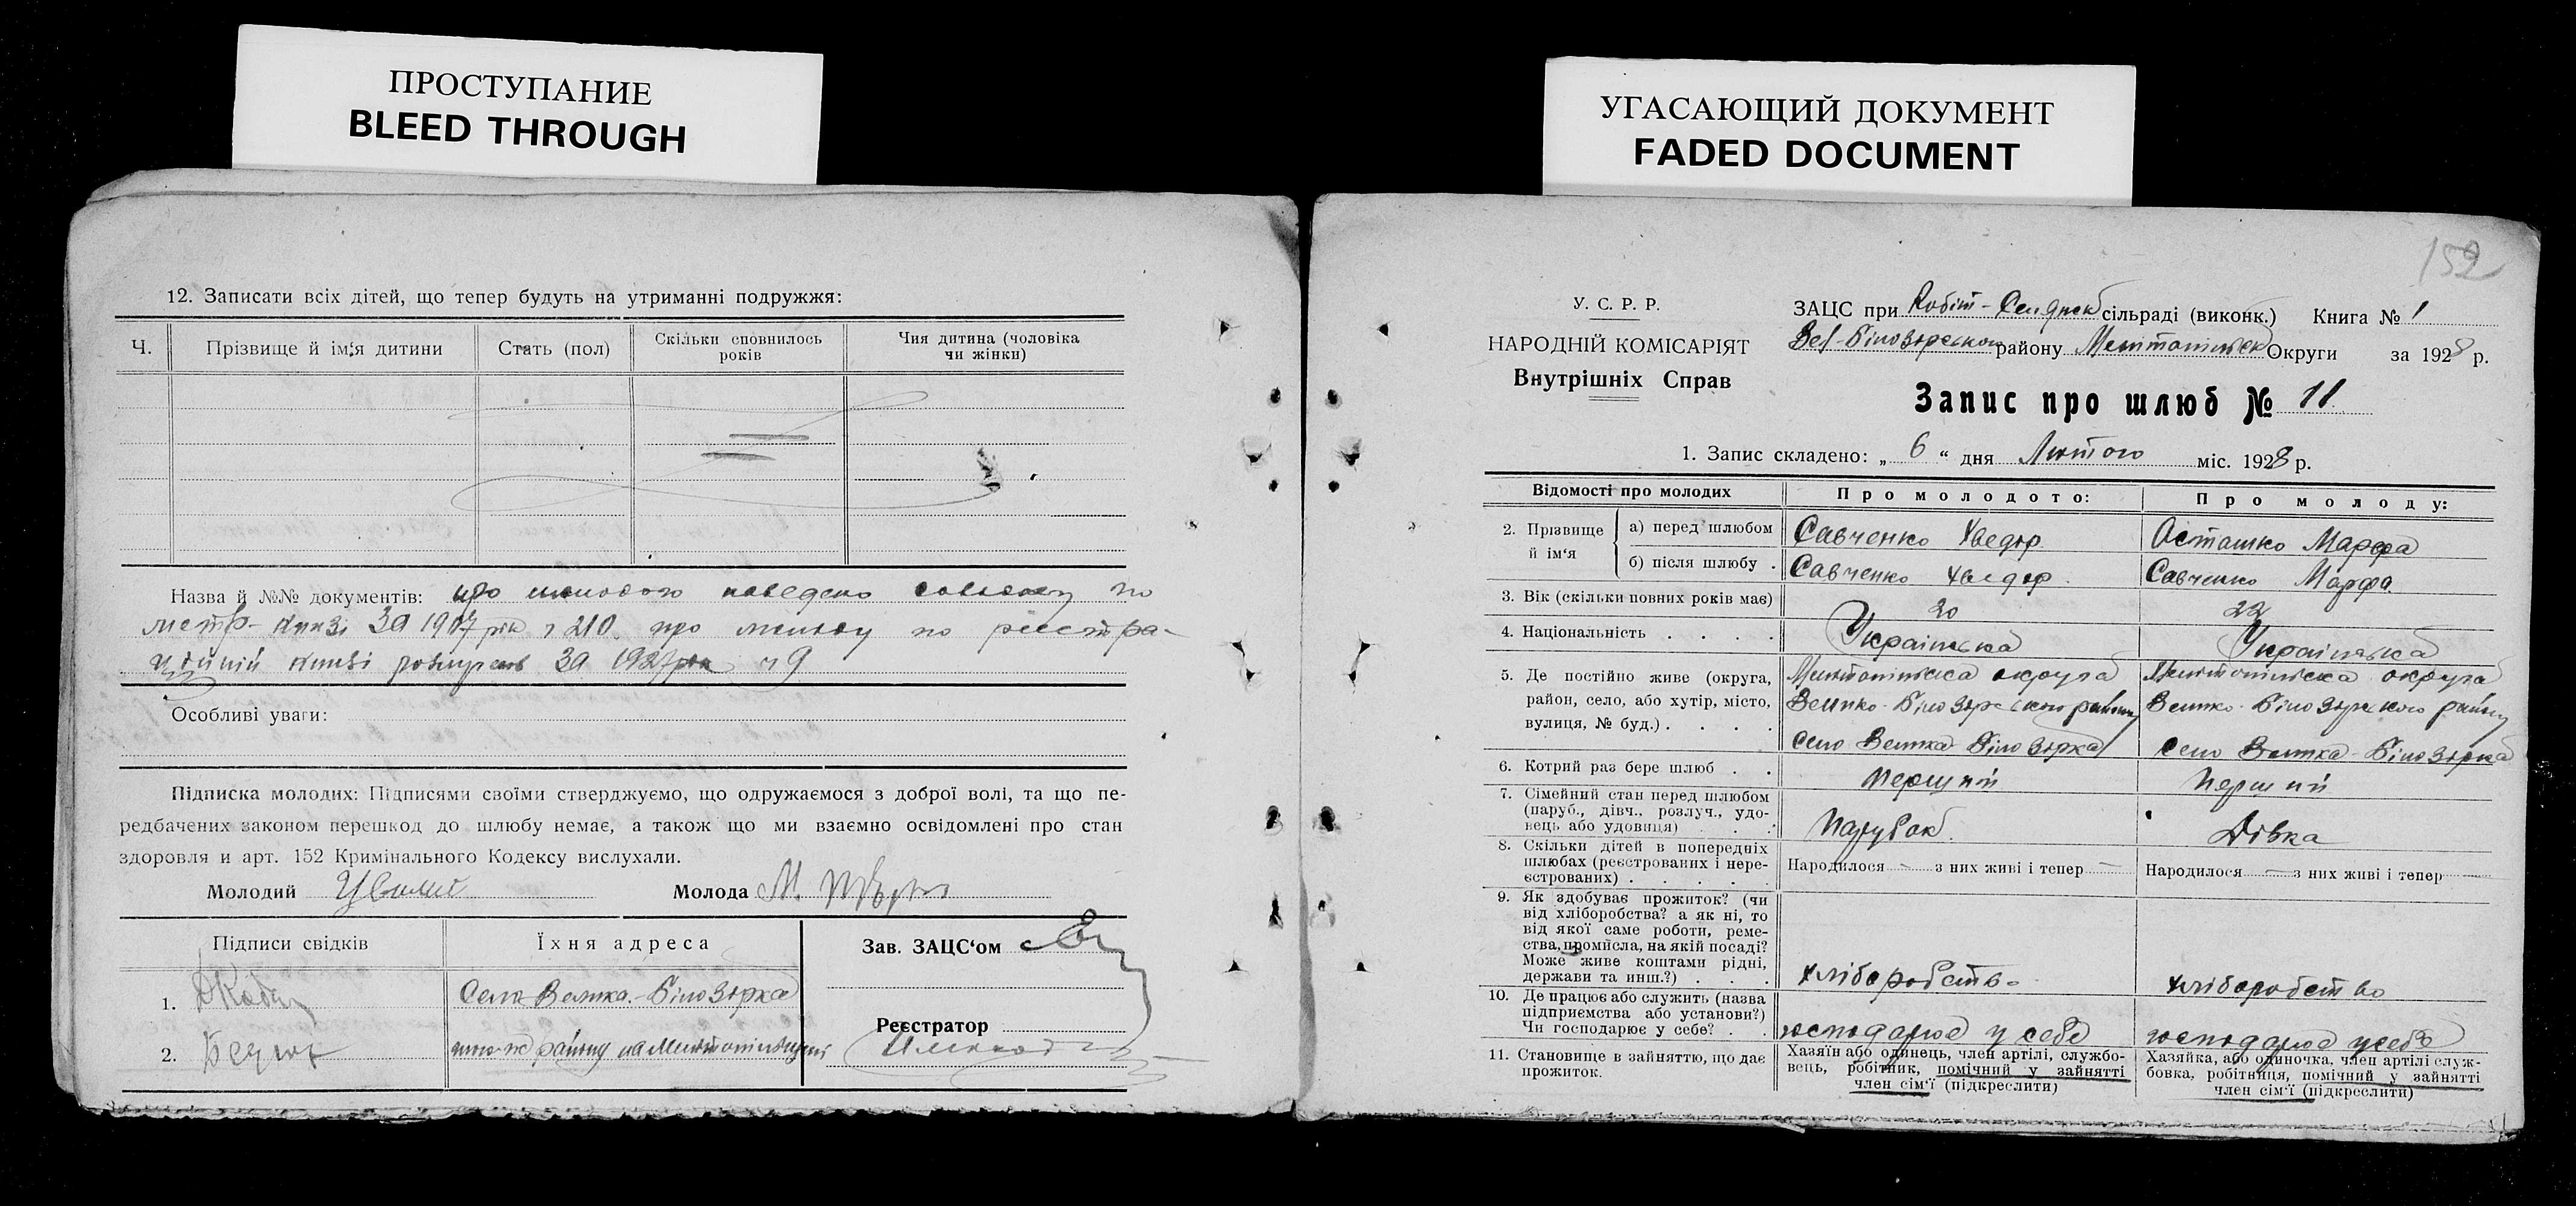 ПРОСТУПАНИЕ
BLEED THROUGH
12. Записати всіх дітей, що тепер будуть на утриманні подружжя:
Ч.
Прізвище й ім'я дитини
Стать (пол)
Скільки сповнилось
років
Чия дитина (чоловіка
чи жінки)
Назва й №№ документів: про молодого
метр. книзі за 1907 рік 210 про молоду по реєстра-
ційній книзі за 1927 рік ч 9
Особливі уваги:
Підписка молодих: Підписями своїми стверджуємо, що одружаємося з доброї волі, та що пе-
редбачених законом перешкод до шлюбу немає, а також що ми взаємно освідомлені про стан
здоровля и арт. 152 Кримінального Кодексу вислухали.
Молодий
Молода М.
Підписи свідків
Їхня адреса
Зав. ЗАЦС'ом
1.
Село Велика-Білозірка
Реєстратор
2.
району на
УГАСАЮЩИЙ ДОКУМЕНТ
FADED DOCUMENT
152
У. С. Р. Р.
НАРОДНІЙ КОМІСАРІЯТ
Внутрішніх Справ
ЗАЦС при Робіт-Сел сільраді (виконк.) Книга № 1
Вел-Білозірського району Мелітопільськ Округи за 1928 р.
Запис про шлюб № 11
1. Запис складено: „ 6 “ дня Лютого міс. 1928 р.
Відомості про молодих
Про молодого:
Про молоду:
2. Прізвище й ім'я
а) перед шлюбом
Савченко Хведір
Осташко Марфа
б) після шлюбу
Савченко Хведір
Савченко Марфа
3. Вік (скільки повних років має)
20
22
4. Національність
Українська
Українська
5. Де постійно живе (округа,
район, село, або хутір, місто,
вулиця, № буд.)
Мелітопільска округа
Велико-Білозірского району
село Велика Білозірка
Мелітопільска округа
Велико-Білозірского району
село Велика-Білозірка
6. Котрий раз бере шлюб
Перший
Перший
7. Сімейний стан перед шлюбом
(паруб., дівч., розлуч., удо-
вець або удовиця)
Парубок
Дівка
8. Скільки дітей в попередніх
шлюбах (реєстрованих і нере-
єстрованих)
Народилося — з них живі і тепер —
Народилося — з них живі і тепер —
9. Як здобуває прожиток? (чи
від хліборобства? а як ні, то
від якої саме роботи, реме-
ства, промисла, на якій посаді?
Може живе коштами рідні,
держави та инш.?)
хліборобство
хліборобство
10. Де працює або служить (назва
підприємства або установи?)
Чи господарює у себе?
господарює у себе
господарює у себе
11. Становище в зайняттю, що дає
прожиток.
Хазяїн або одинець, член артілі, службо-
вець, робітник, помічний у зайнятті
член сім'ї (підкреслити)
Хазяйка, або одиночка, член артілі служ-
бовка, робітниця, помічний у зайнятті
член сім'ї (підкреслити)